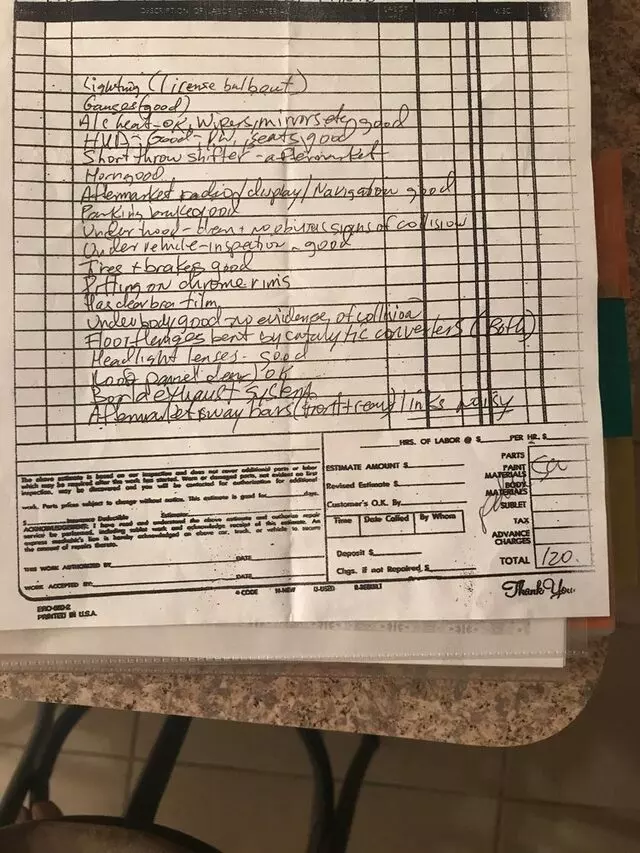 DESCRIPTION OF LABOR OR MATERIAL
LABOR
PARTS
MISC
Lighting (license bulb out)
Gauges (good)
A/c heat-OK, wipers, mirrors etc good
Good- PW, seats, good
Short throw shifter - aftermarket
Horn good
Aftermarket radio/display/Navigation good
Parking brake good
Under hood - clean + no obvious signs of collision
Under vehicle-inspection - good
Tires + brakes good
Pitting on chrome rims
Has clear bra film
Underbody good no evidence of collision
Floor flanges bent by catalytic converters (Both)
Headlight lenses - good
OK
Borla exhaust system
Aftermarket sway bars (front+rear) links noisy
HRS. OF LABOR @ $ PER HR. $
The above estimate is based on our inspection and does not cover additional parts or labor
which may be required after the work has been started. Worn or damaged parts, not evident on first
inspection, may be discovered and you will be contacted for authorization for additional
work. Parts prices subject to change without notice. This estimate is good for days.
$ Insurance Deductible Estimator
ACKNOWLEDGEMENT: I have read and understand the above estimate and authorize repair
service be performed, including sublet work and acknowledge receipt of this estimate. An
express mechanic's lien is hereby acknowledged on above car, truck or vehicle to secure
the amount of repairs thereto.
THIS WORK AUTHORIZED BY DATE
WORK ACCEPTED BY DATE
ESTIMATE AMOUNT $
Revised Estimate $
Customer's O.K. By
Time Date Called By Whom
Deposit $
Chgs. if not Repaired $
PARTS
PAINT MATERIALS
BODY MATERIALS
SUBLET
TAX
ADVANCE CHARGES
TOTAL 120.
* CODE N-NEW U-USED R-REBUILT
Thank You
ERO-660-2
PRINTED IN U.S.A.